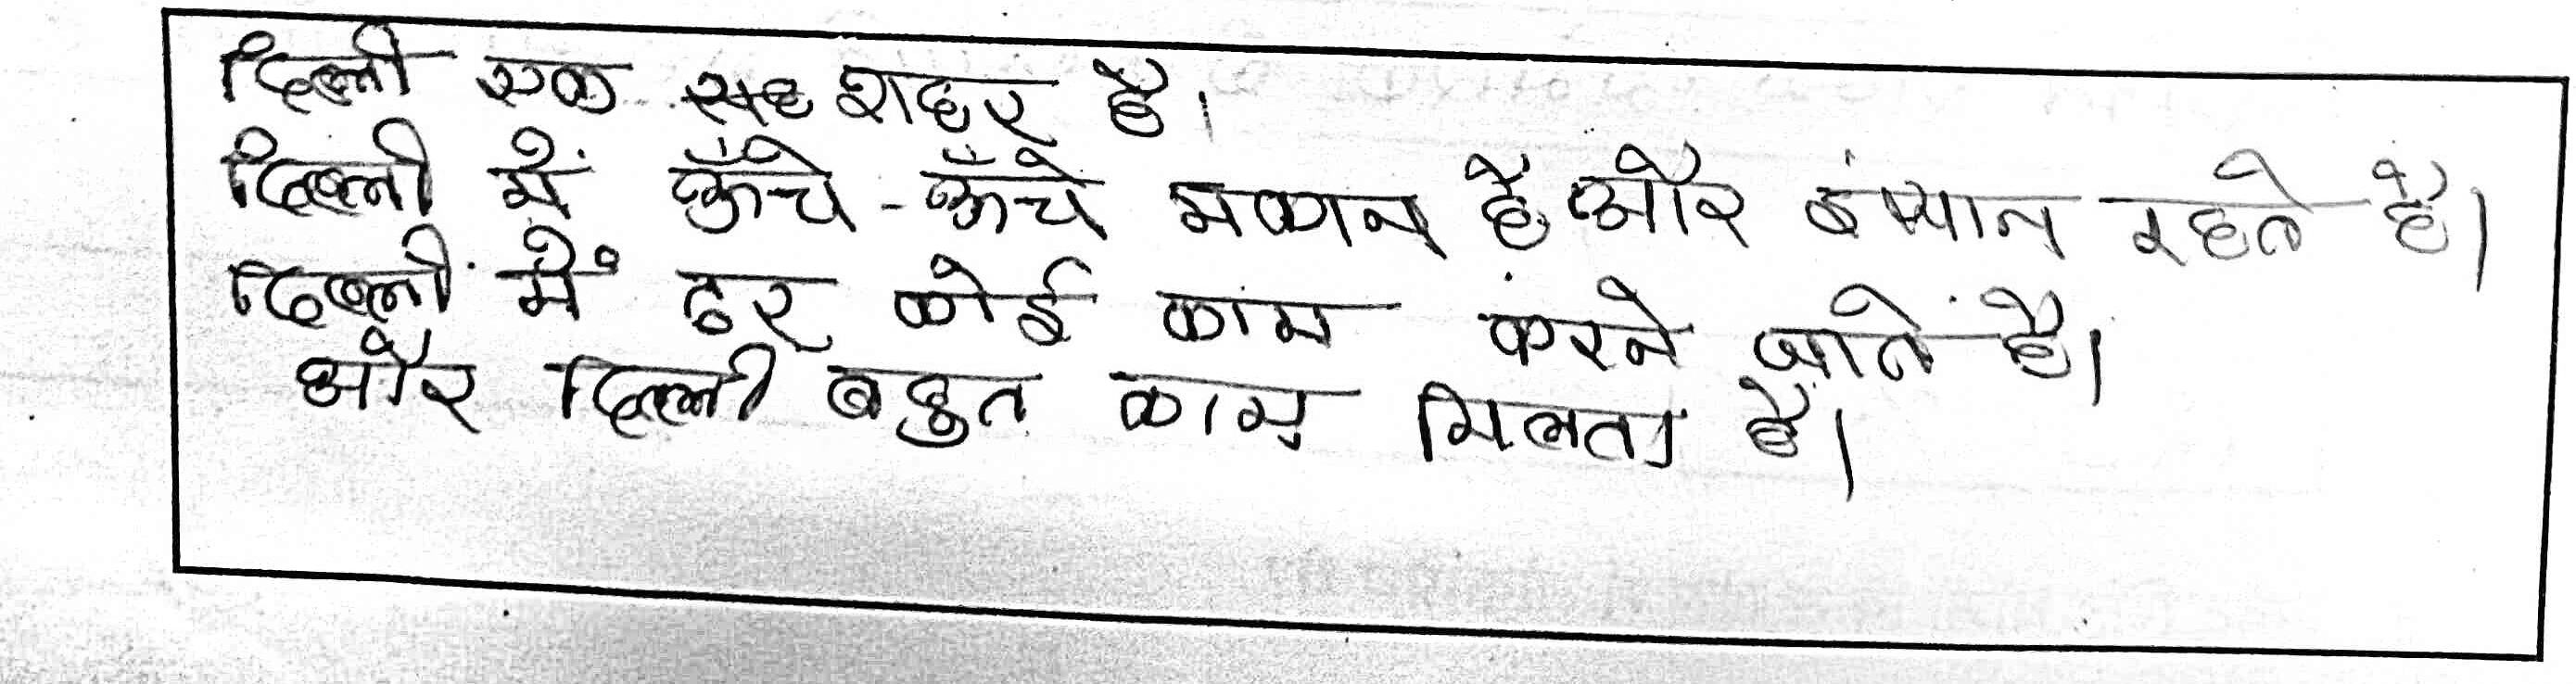 दिल्ली एक शहर है।
दिल्ली में ऊँचे-ऊँचे मकान है और इंसान रहते है।
दिल्ली में हर कोई काम करने जाते है।
और दिल्ली बहुत काम मिलता है।